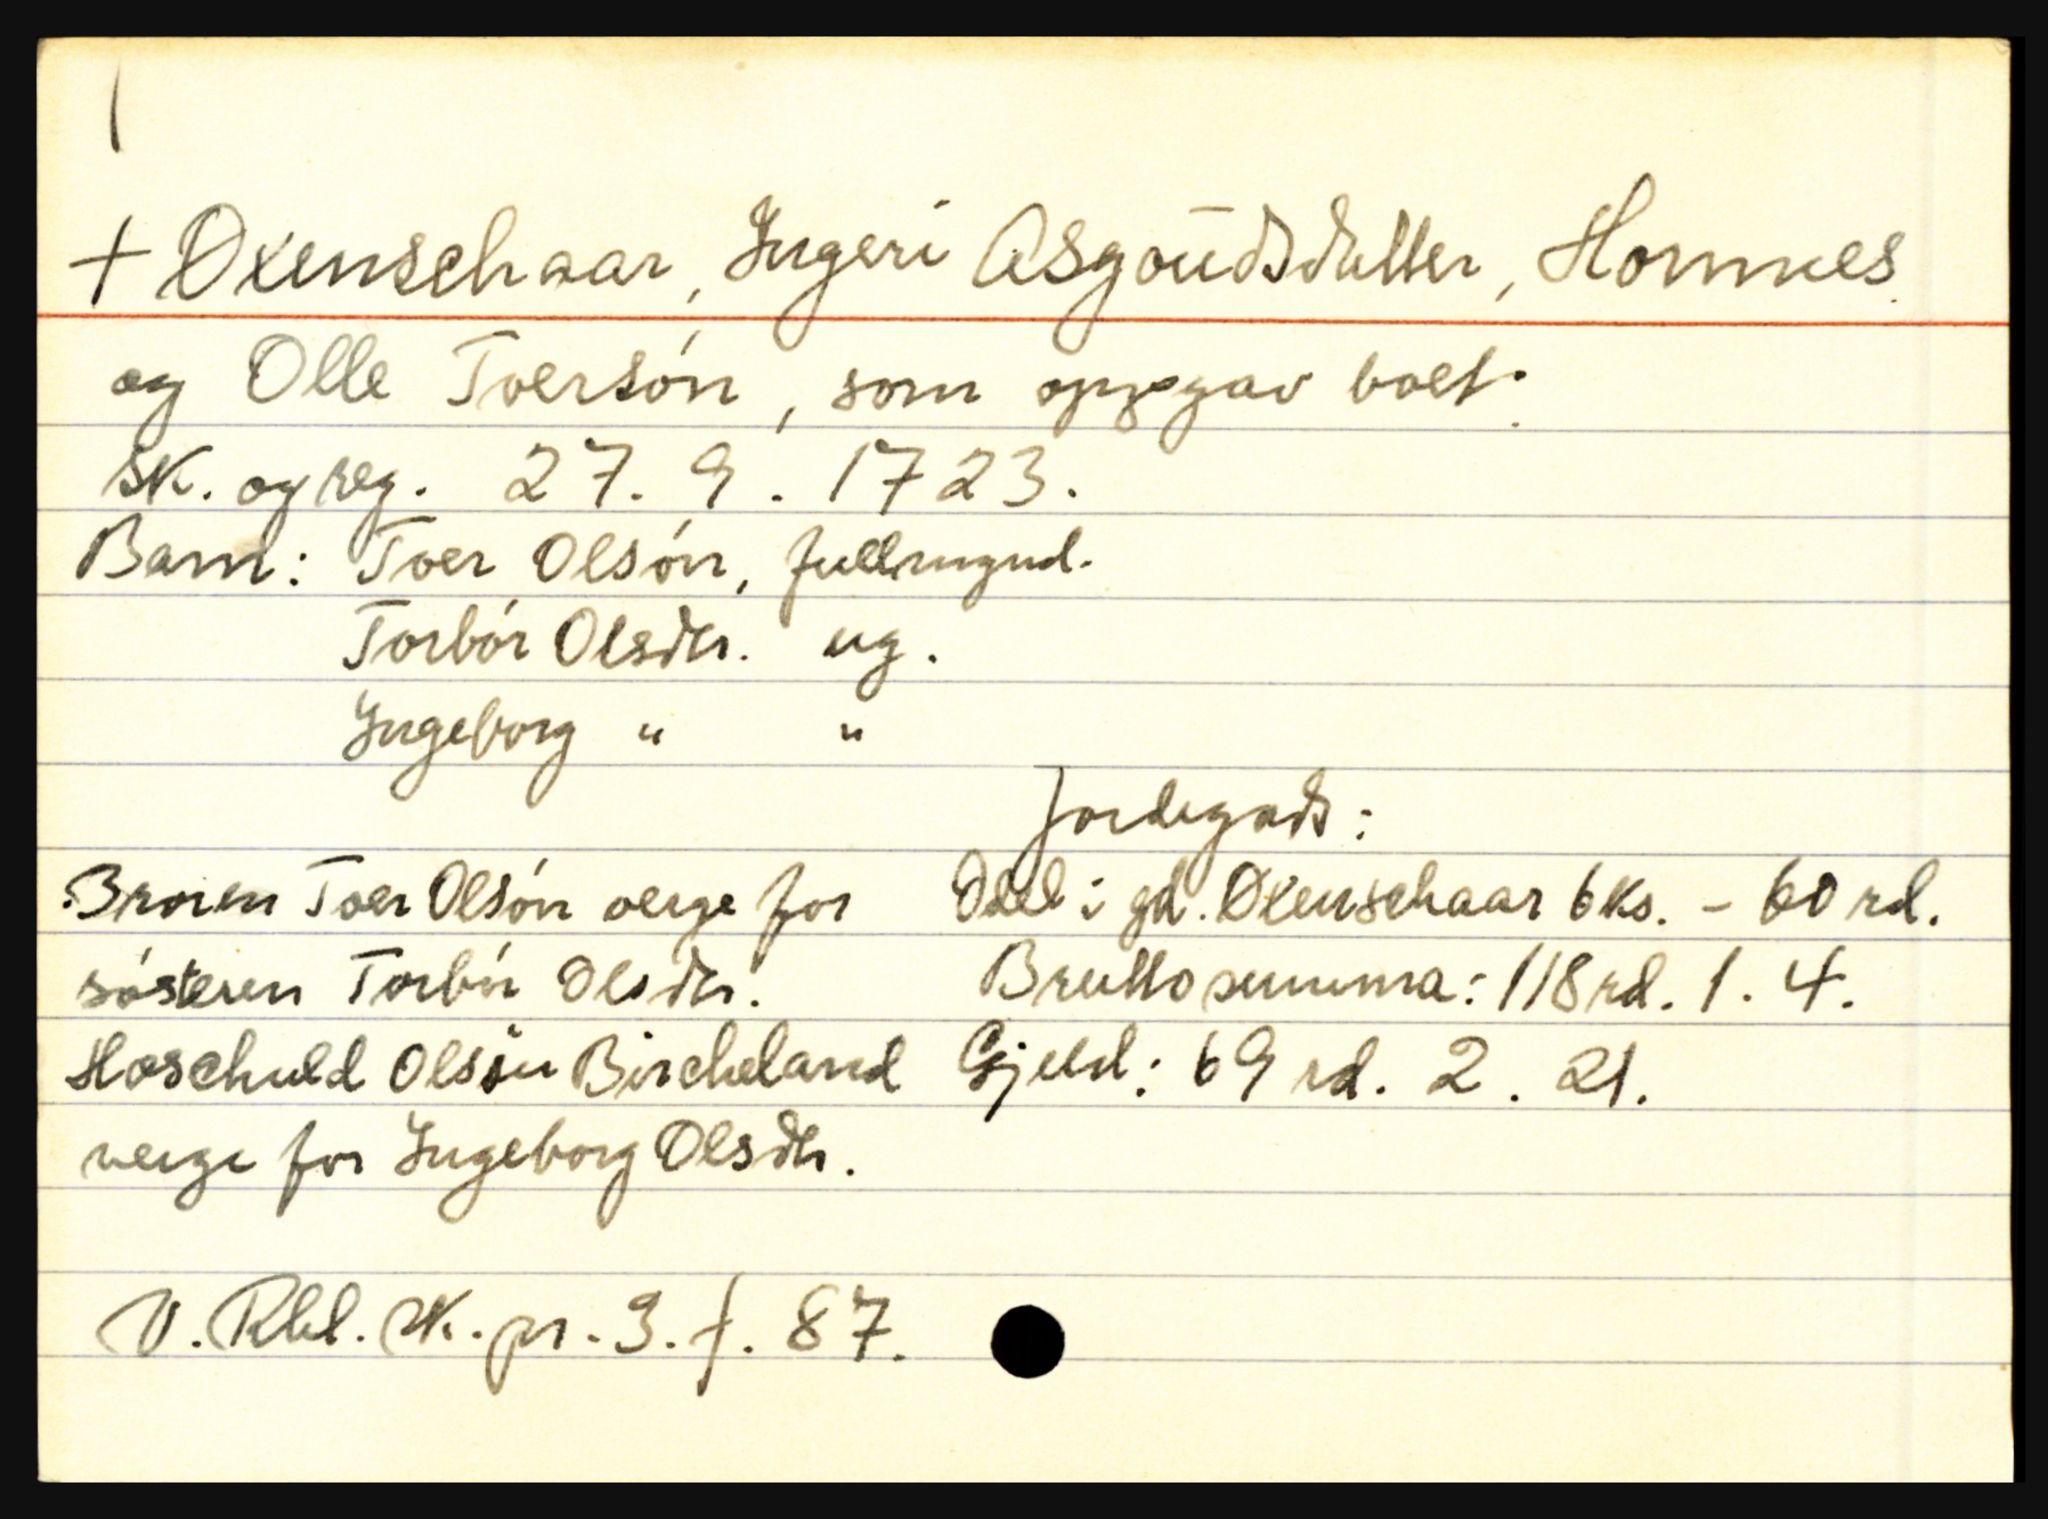 + Oxenschaar, Ingeri Asgoudsdatter, Homnes
og Olle Toersön, som oppgav boet.
Sk. og reg. 27. 9. 1723.
Barn: Toer Olsön, fullmynd.
Torbör Olsdtr. ug.
Ingeborg " "
Jordegods:
Broren Toer Olsön verge for
Odel i gd. Oxenschaar 6 ks. - 60 rd.
sösteren Torbör Olsdtr.
Brutto summa: 118 rd. 1. 4.
Hoschuld Olsön Bircheland
Gjeld: 69 rd. 2. 21.
verge for Ingeborg Olsdtr.
V. Rbl. sk. pr. 3. f. 87.